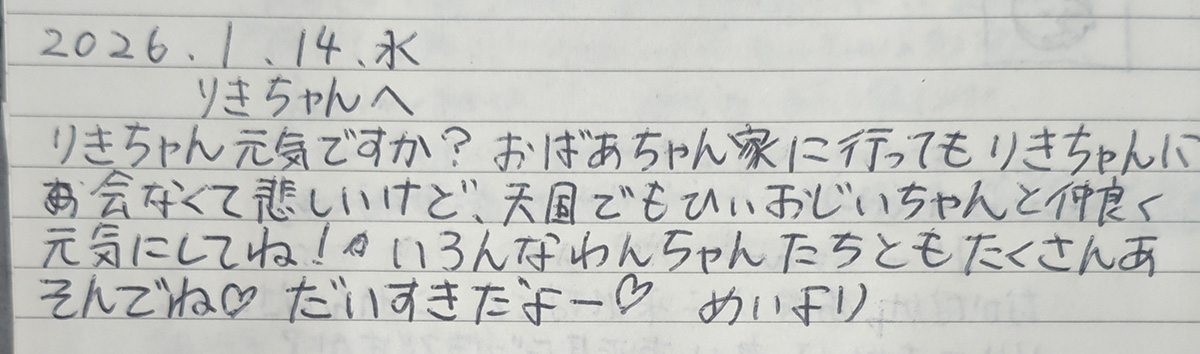 2026.1.14.水
りきちゃんへ
りきちゃん元気ですか?おばあちゃん家に行ってもりきちゃんに
会なくて悲しいけど、天国でもひぃおじいちゃんと仲良く
元気にしてね!いろんなわんちゃんたちともたくさんあ
そんでね♡ だいすきだよー♡ めいより